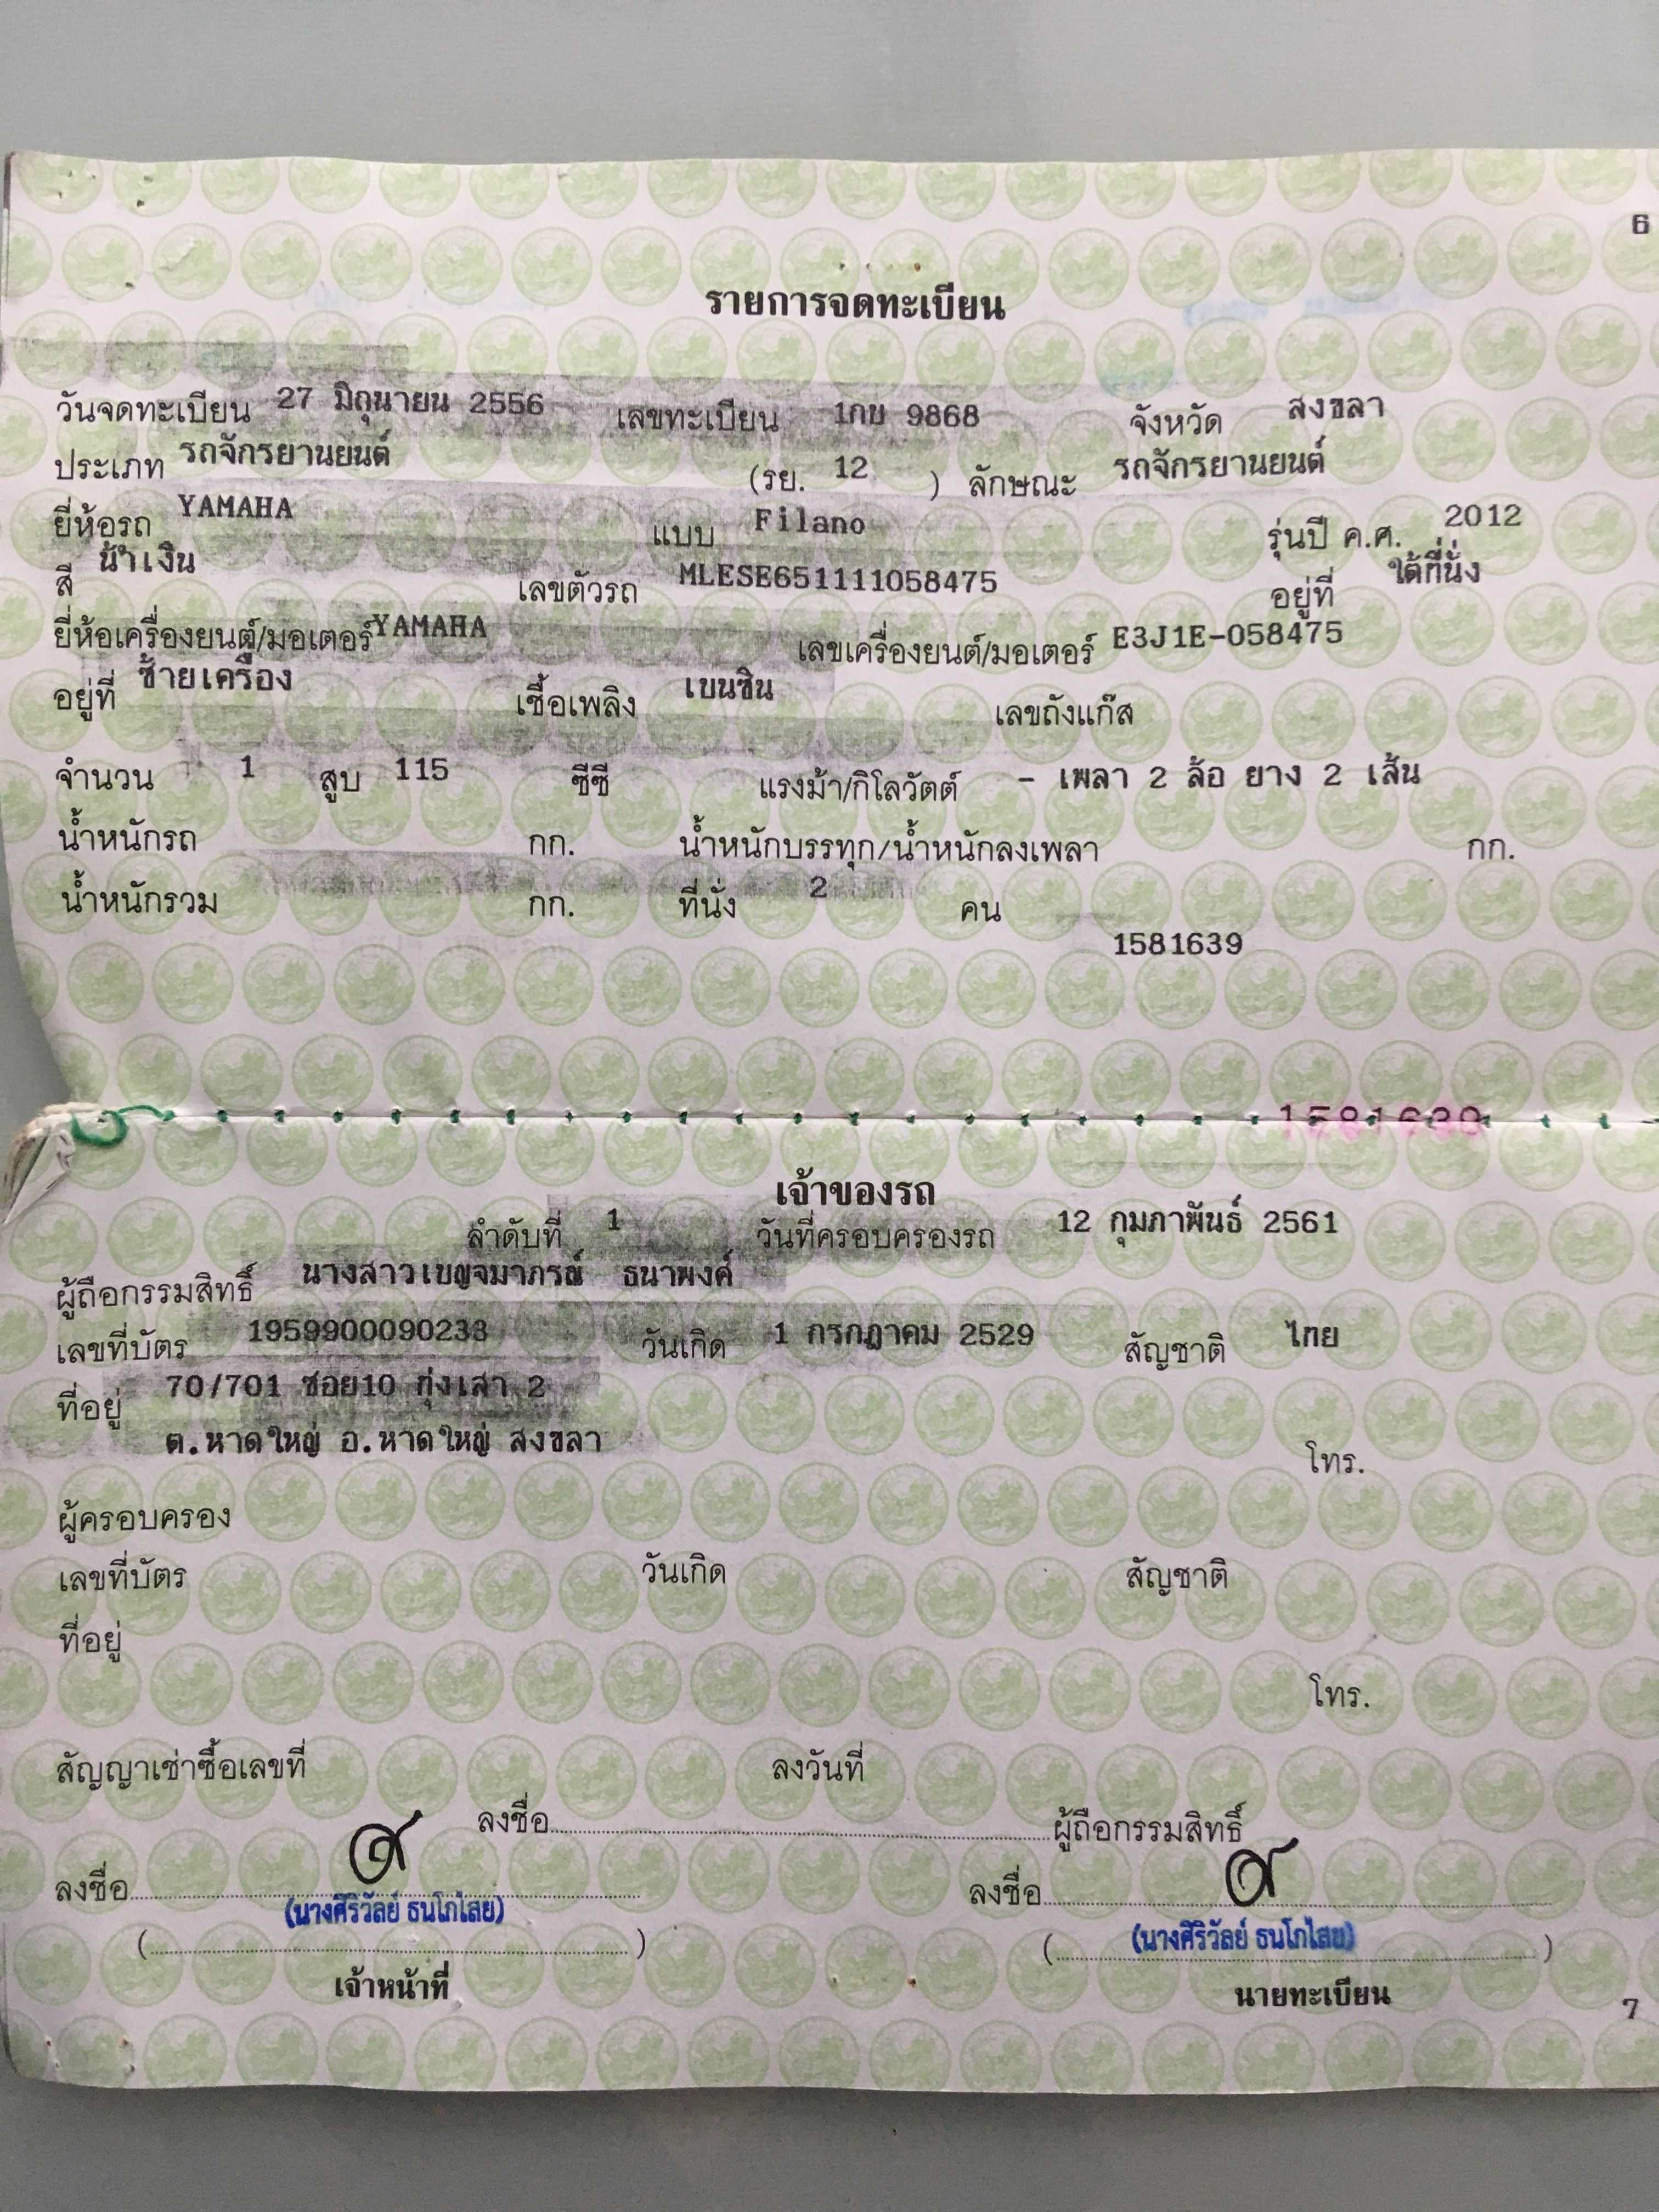 6
รายการจดทะเบียน
วันจดทะเบียน 27 มิถุนายน 2556 เลขทะเบียน 1กษ 9868 จังหวัด สงขลา
ประเภท รถจักรยานยนต์ (รย. 12 ) ลักษณะ รถจักรยานยนต์
ยี่ห้อรถ YAMAHA แบบ Filano รุ่นปี ค.ศ. 2012
สี น้ำเงิน เลขตัวรถ MLESE651111058475 อยู่ที่ ใต้ที่นั่ง
ยี่ห้อเครื่องยนต์/มอเตอร์ YAMAHA เลขเครื่องยนต์/มอเตอร์ E3J1E-058475
อยู่ที่ ซ้ายเครื่อง เชื้อเพลิง เบนซิน เลขถังแก๊ส
จำนวน 1 สูบ 115 ซีซี แรงม้า/กิโลวัตต์ - เพลา 2 ล้อ ยาง 2 เส้น
น้ำหนักรถ กก. น้ำหนักบรรทุก/น้ำหนักลงเพลา กก.
น้ำหนักรวม กก. ที่นั่ง 2 คน
1581639
1581639
เจ้าของรถ
ลำดับที่ 1 วันที่ครอบครองรถ 12 กุมภาพันธ์ 2561
ผู้ถือกรรมสิทธิ์ นางสาวเบญจมาภรณ์ ธนาพงศ์
เลขที่บัตร 1959900090233 วันเกิด 1 กรกฎาคม 2529 สัญชาติ ไทย
ที่อยู่ 70/701 ซอย10 ทุ่งเสา 2
ต.หาดใหญ่ อ.หาดใหญ่ สงขลา
โทร.
ผู้ครอบครอง
เลขที่บัตร วันเกิด สัญชาติ
ที่อยู่
โทร.
สัญญาเช่าซื้อเลขที่ ลงวันที่
ลงชื่อ ผู้ถือกรรมสิทธิ์
ลงชื่อ ลงชื่อ
(นางศิริวัลย์ ธนโกไสย) (นางศิริวัลย์ ธนโกไสย)
( ) ( )
เจ้าหน้าที่ นายทะเบียน
7